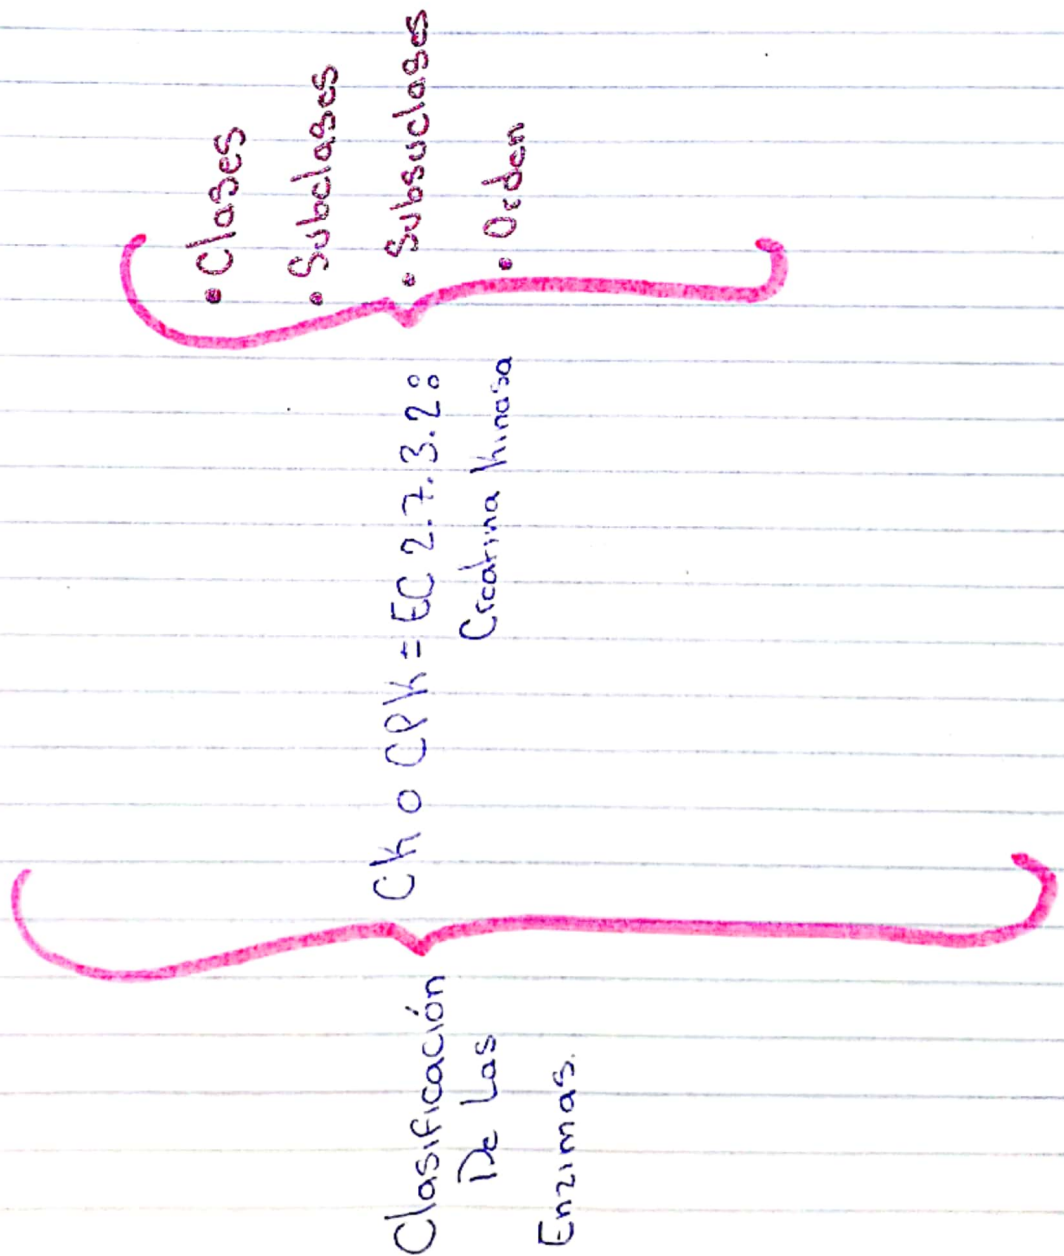 Clasificación
De Las
Enzimas.
Ck o CPK = EC 2.7.3.2:
Creatina Kinasa
• Clases
• Subclases
• Subsuclases
• Orden